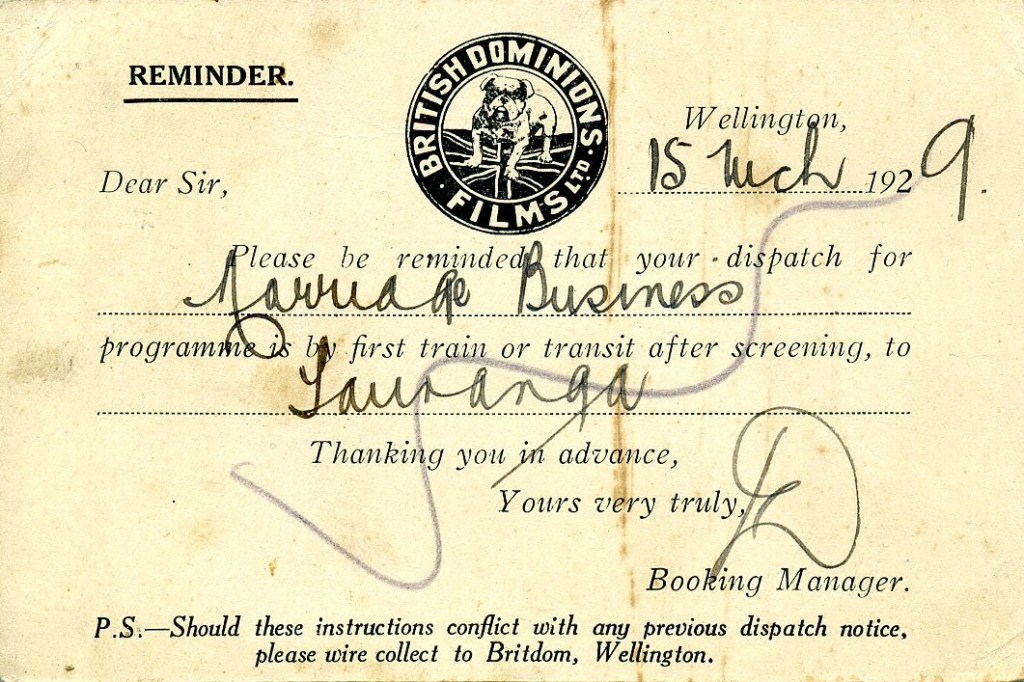 REMINDER.
BRITISH DOMINIONS
FILMS LTD
Wellington,
15 Mch 1929.
Dear Sir,
Please be reminded that your dispatch for
Marriage Business
programme is by first train or transit after screening, to
Tauranga
Thanking you in advance,
Yours very truly,
Booking Manager.
P.S.—Should these instructions conflict with any previous dispatch notice,
please wire collect to Britdom, Wellington.